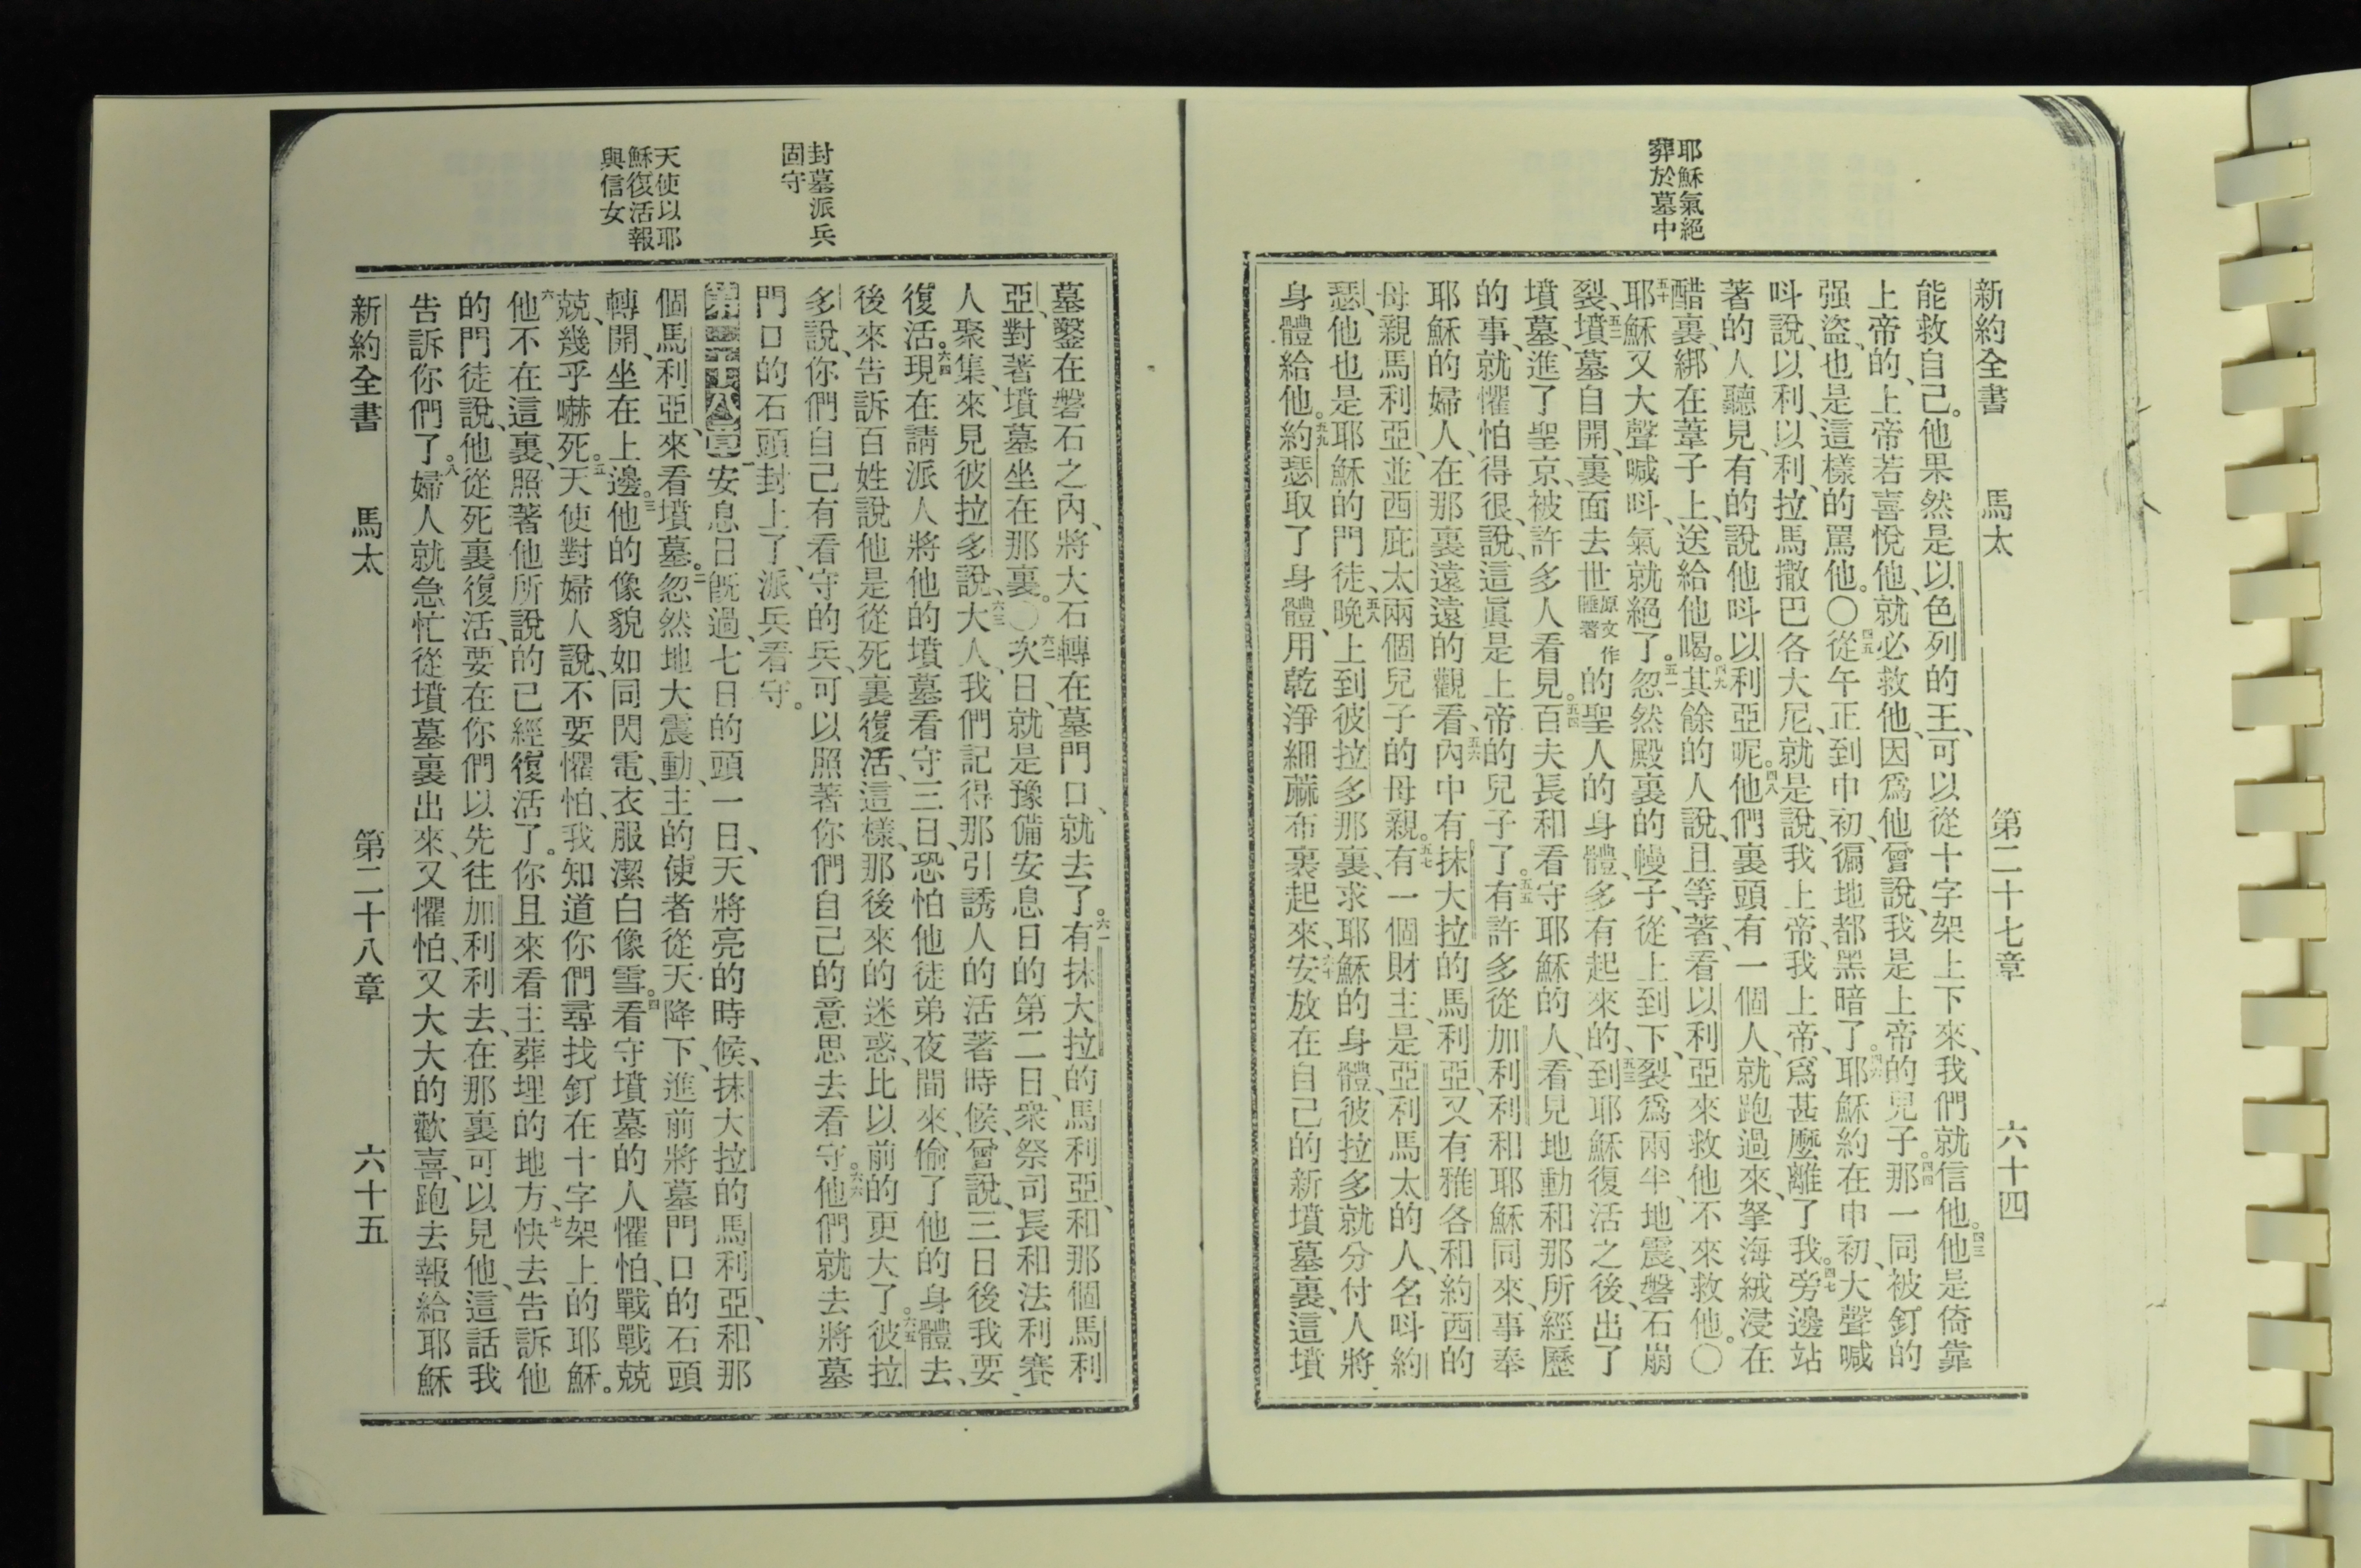 耶穌氣絕
葬於墓中
新約全書 馬太 第二十七章 六十四
能救自己。他果然是以色列的王、可以從十字架上下來、我們就信他。四三他是倚靠
上帝的、上帝若喜悅他、就必救他、因爲他曾說、我是上帝的兒子。四四那一同被釘的
强盜、也是這樣的罵他。〇四五從午正到申初、徧地都黑暗了。四六耶穌約在申初、大聲喊
呌說、以利、以利、拉馬撒巴各大尼、就是說、我上帝、我上帝、爲甚麽離了我。四七旁邊站
著的人聽見、有的說他呌以利亞呢。四八他們裏頭有一個人、就跑過來、拏海絨浸在
醋裏、綁在葦子上、送給他喝。四九其餘的人說、且等著、看以利亞來救他不來救他。〇
五十耶穌又大聲喊呌、氣就絕了。五一忽然殿裏的幔子、從上到下、裂爲兩半、地震、磐石崩
裂、五二墳墓自開、裏面去世原文作睡著的聖人的身體、多有起來的、五三到耶穌復活之後、出了
墳墓、進了聖京、被許多人看見。五四百夫長和看守耶穌的人、看見地動和那所經歷
的事、就懼怕得很、說、這眞是上帝的兒子了。五五有許多從加利利和耶穌同來、事奉
耶穌的婦人、在那裏遠遠的觀看、五六內中有抹大拉的馬利亞、又有雅各和約西的
母親馬利亞、並西庇太兩個兒子的母親。五七有一個財主、是亞利馬太的人、名呌約
瑟、他也是耶穌的門徒、五八晚上到彼拉多那裏、求耶穌的身體、彼拉多就分付人將
身體給他。五九約瑟取了身體、用乾淨細蔴布裹起來、六十安放在自己的新墳墓裏、這墳
封墓派兵
固守
天使以耶
穌復活報
與信女
墓鑿在磐石之內、將大石轉在墓門口、就去了。六一有抹大拉的馬利亞、和那個馬利
亞、對著墳墓坐在那裏。〇六二次日、就是豫備安息日的第二日、衆祭司長和法利賽
人聚集、來見彼拉多說、六三大人、我們記得那引誘人的活著時候、曾說、三日後我要
復活。六四現在請派人將他的墳墓看守三日、恐怕他徒弟夜間來、偷了他的身體去、
後來告訴百姓說他是從死裏復活、這樣、那後來的迷惑、比以前的更大了。六五彼拉
多說、你們自己有看守的兵、可以照著你們自己的意思去看守。六六他們就去將墓
門口的石頭封上了、派兵看守。
第二十八章一安息日旣過、七日的頭一日、天將亮的時候、抹大拉的馬利亞、和那
個馬利亞、來看墳墓。二忽然地大震動、主的使者從天降下、進前將墓門口的石頭
轉開、坐在上邊。三他的像貌如同閃電、衣服潔白像雪。四看守墳墓的人懼怕、戰戰兢
兢、幾乎嚇死。五天使對婦人說、不要懼怕、我知道你們尋找釘在十字架上的耶穌。
六他不在這裏、照著他所說的已經復活了。你且來看主葬埋的地方、七快去告訴他
的門徒說、他從死裏復活、要在你們以先往加利利去、在那裏可以見他、這話我
告訴你們了。八婦人就急忙從墳墓裏出來、又懼怕、又大大的歡喜、跑去報給耶穌
新約全書 馬太 第二十八章 六十五